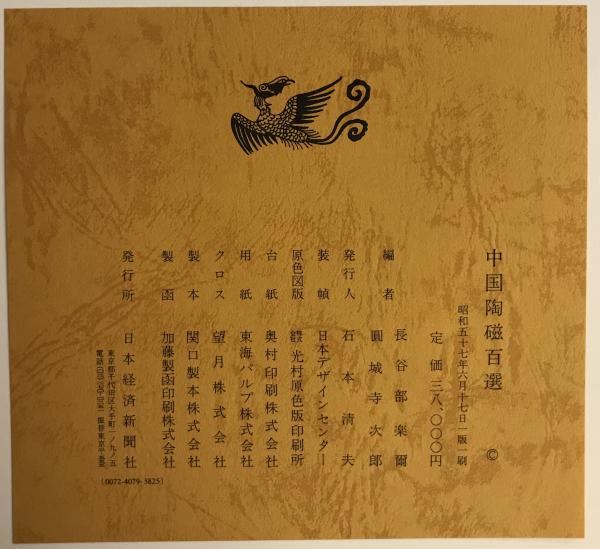 中国陶磁百選 ©
昭和五十七年六月十七日一版一刷
定価 三八、〇〇〇円
編者 長谷部楽爾
圓城寺次郎
発行人 石本清夫
装幀 日本デザインセンター
原色図版 光村原色版印刷所
台紙 奥村印刷株式会社
用紙 東海パルプ株式会社
クロス 望月株式会社
製本 関口製本株式会社
製函 加藤製函印刷株式会社
発行所 日本経済新聞社
東京都千代田区大手町一ノ九ノ五
〔0072-4079-5825〕